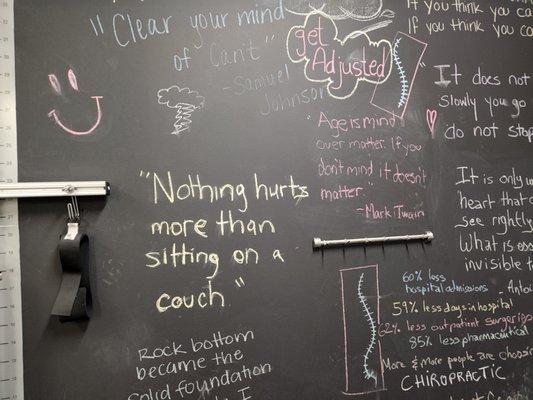 "Clear your mind
of Can't"
- Samuel
Johnson
get
Adjusted
If you think you ca
If you think you ca
It does not
slowly you go
do not stop
"Age is mind
over matter. If you
don't mind it doesn't
matter."
- Mark Twain
It is only w
heart that o
see rightly
What is ess
invisible t
- Antoi
"Nothing hurts
more than
sitting on a
couch."
60% less
hospital admissions
59% less days in hospital
62% less outpatient surgeries
85% less pharmaceutical
More & more people are choosi
CHIROPRACTIC
Rock bottom
became the
Solid foundation
I